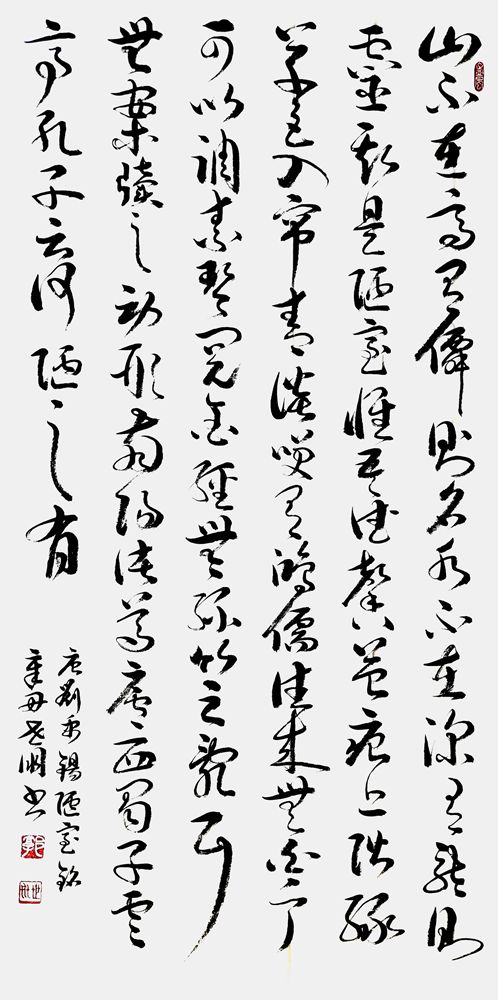 山不在高有僊則名水不在深有龍則
靈斯是陋室惟吾德馨苔痕上階綠
草色入帘青談笑有鴻儒往來無白丁
可以調素琴閱金經無絲竹之亂耳
無案牘之勞形南陽諸葛廬西蜀子雲
亭孔子云何陋之有
唐劉禹錫陋室銘
书